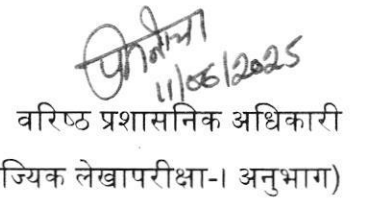 11/06/2025
वरिष्ठ प्रशासनिक अधिकारी
ज्यिक लेखापरीक्षा-I अनुभाग)